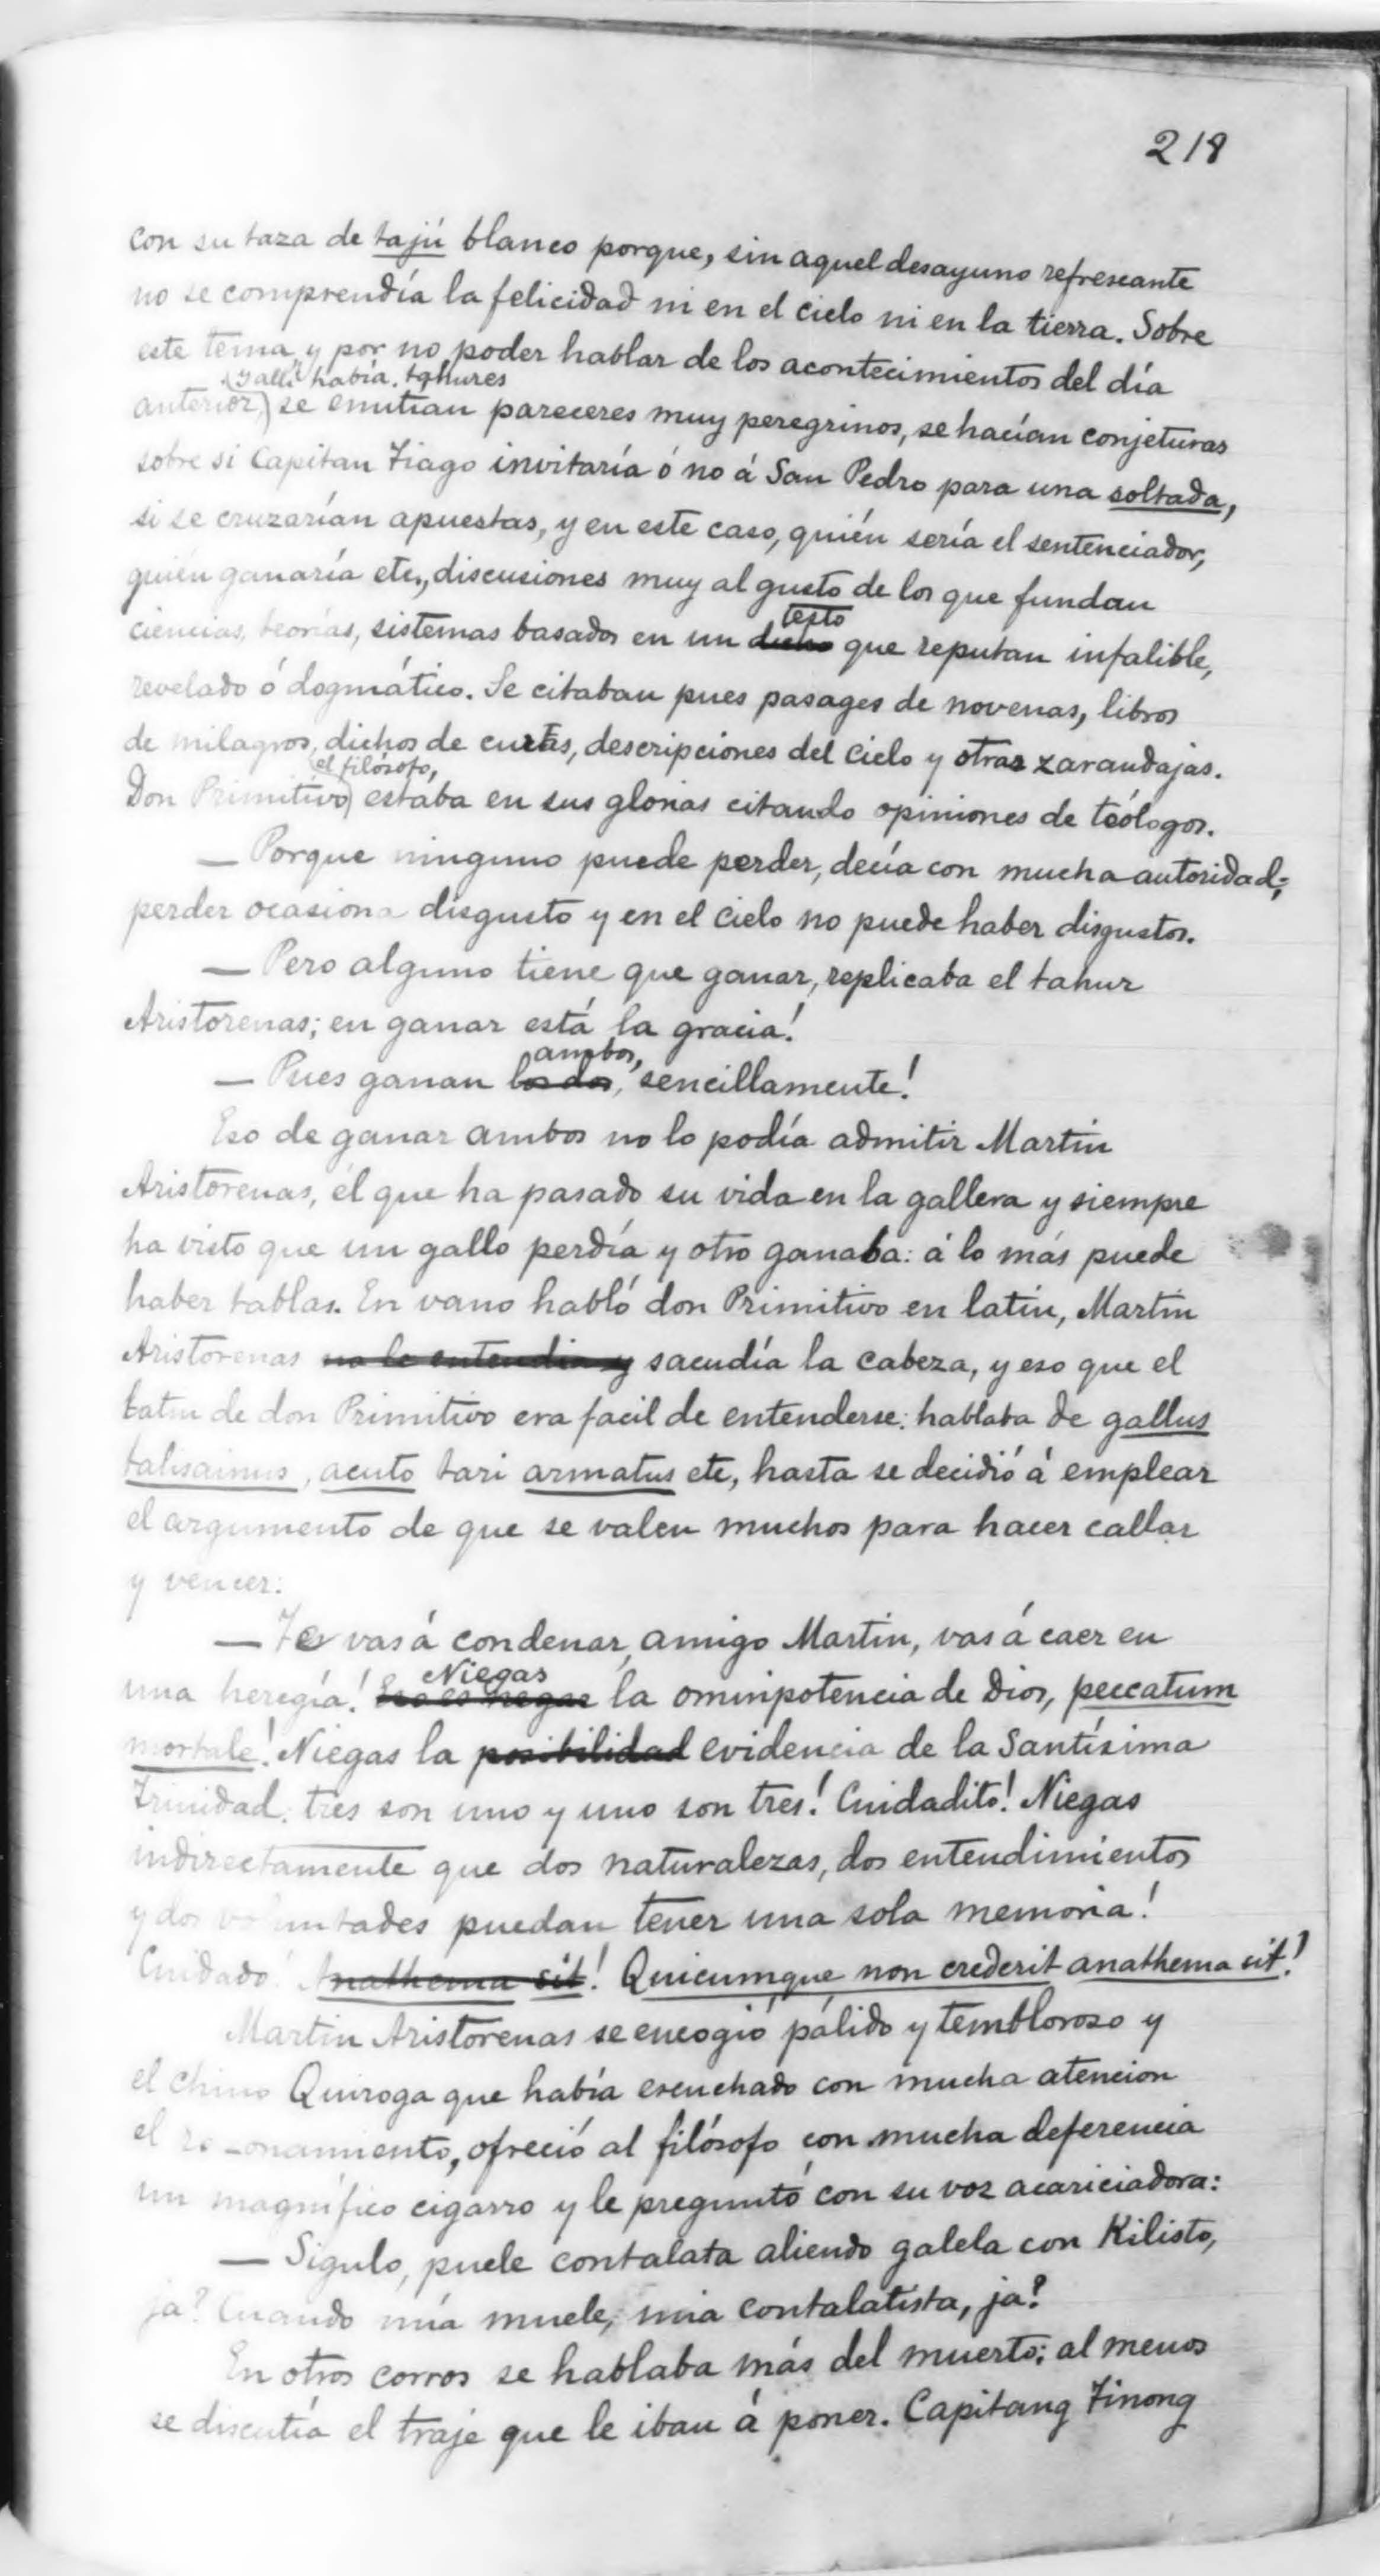 218
con su taza de tajú blanco porque, sin aquel desayuno refrescante
no se comprendía la felicidad ni en el cielo ni en la tierra. Sobre
este tema y por no poder hablar de los acontecimientos del día
(y allí había tahures
anterior,) se emitian pareceres muy peregrinos, se hacían conjeturas
sobre si Capitan Tiago invitaría ó no á San Pedro para una soltada,
si se cruzarían apuestas, y en este caso, quién sería el sentenciador,
quién ganaría etc., discusiones muy al gusto de los que fundan
testo
ciencias, teorías, sistemas basados en un dicho que reputan infalible,
revelado ó dogmático. Se citaban pues pasages de novenas, libros
de milagros, dichos de curas, descripciones del cielo y otras zarandajas.
el filósofo,
Don Primitivo) estaba en sus glorias citando opiniones de teólogos.
— Porque ninguno puede perder, decía con mucha autoridad;
perder ocasiona disgusto y en el cielo no puede haber disgustos.
— Pero alguno tiene que ganar, replicaba el tahur
Aristorenas; en ganar está la gracia!
ambos,
— Pues ganan los dos, sencillamente!
Eso de ganar ambos no lo podía admitir Martin
Aristorenas, él que ha pasado su vida en la gallera y siempre
ha visto que un gallo perdía y otro ganaba: á lo más puede
haber tablas. En vano habló don Primitivo en latin, Martin
Aristorenas no le entendia y sacudía la cabeza, y eso que el
latin de don Primitivo era facil de entenderse: hablaba de gallus
talisainus, acuto tari armatus etc, hasta se decidió á emplear
el argumento de que se valen muchos para hacer callar
y vencer:
— Te vas á condenar, amigo Martin, vas á caer en
Niegas
una heregía! Eso es negar la ominpotencia de Dios, peccatum
mortale! Niegas la posibilidad evidencia de la Santísima
Trinidad: tres son uno y uno son tres! Cuidadito! Niegas
indirectamente que dos naturalezas, dos entendimientos
y dos voluntades puedan tener una sola memoria!
Cuidado! Anathema sit! Quicumque non crederit anathema sit!
Martin Aristorenas se encogió pálido y tembloroso y
el chino Quiroga que había escuchado con mucha atencion
el razonamiento, ofreció al filósofo con mucha deferencia
un magnífico cigarro y le preguntó con su voz acariciadora:
— Sigulo, puele contalata aliendo galela con Kilisto,
ja? Cuando mía muele, mia contalatista, ja?
En otros corros se hablaba más del muerto; al menos
se discutía el traje que le iban á poner. Capitang Tinong